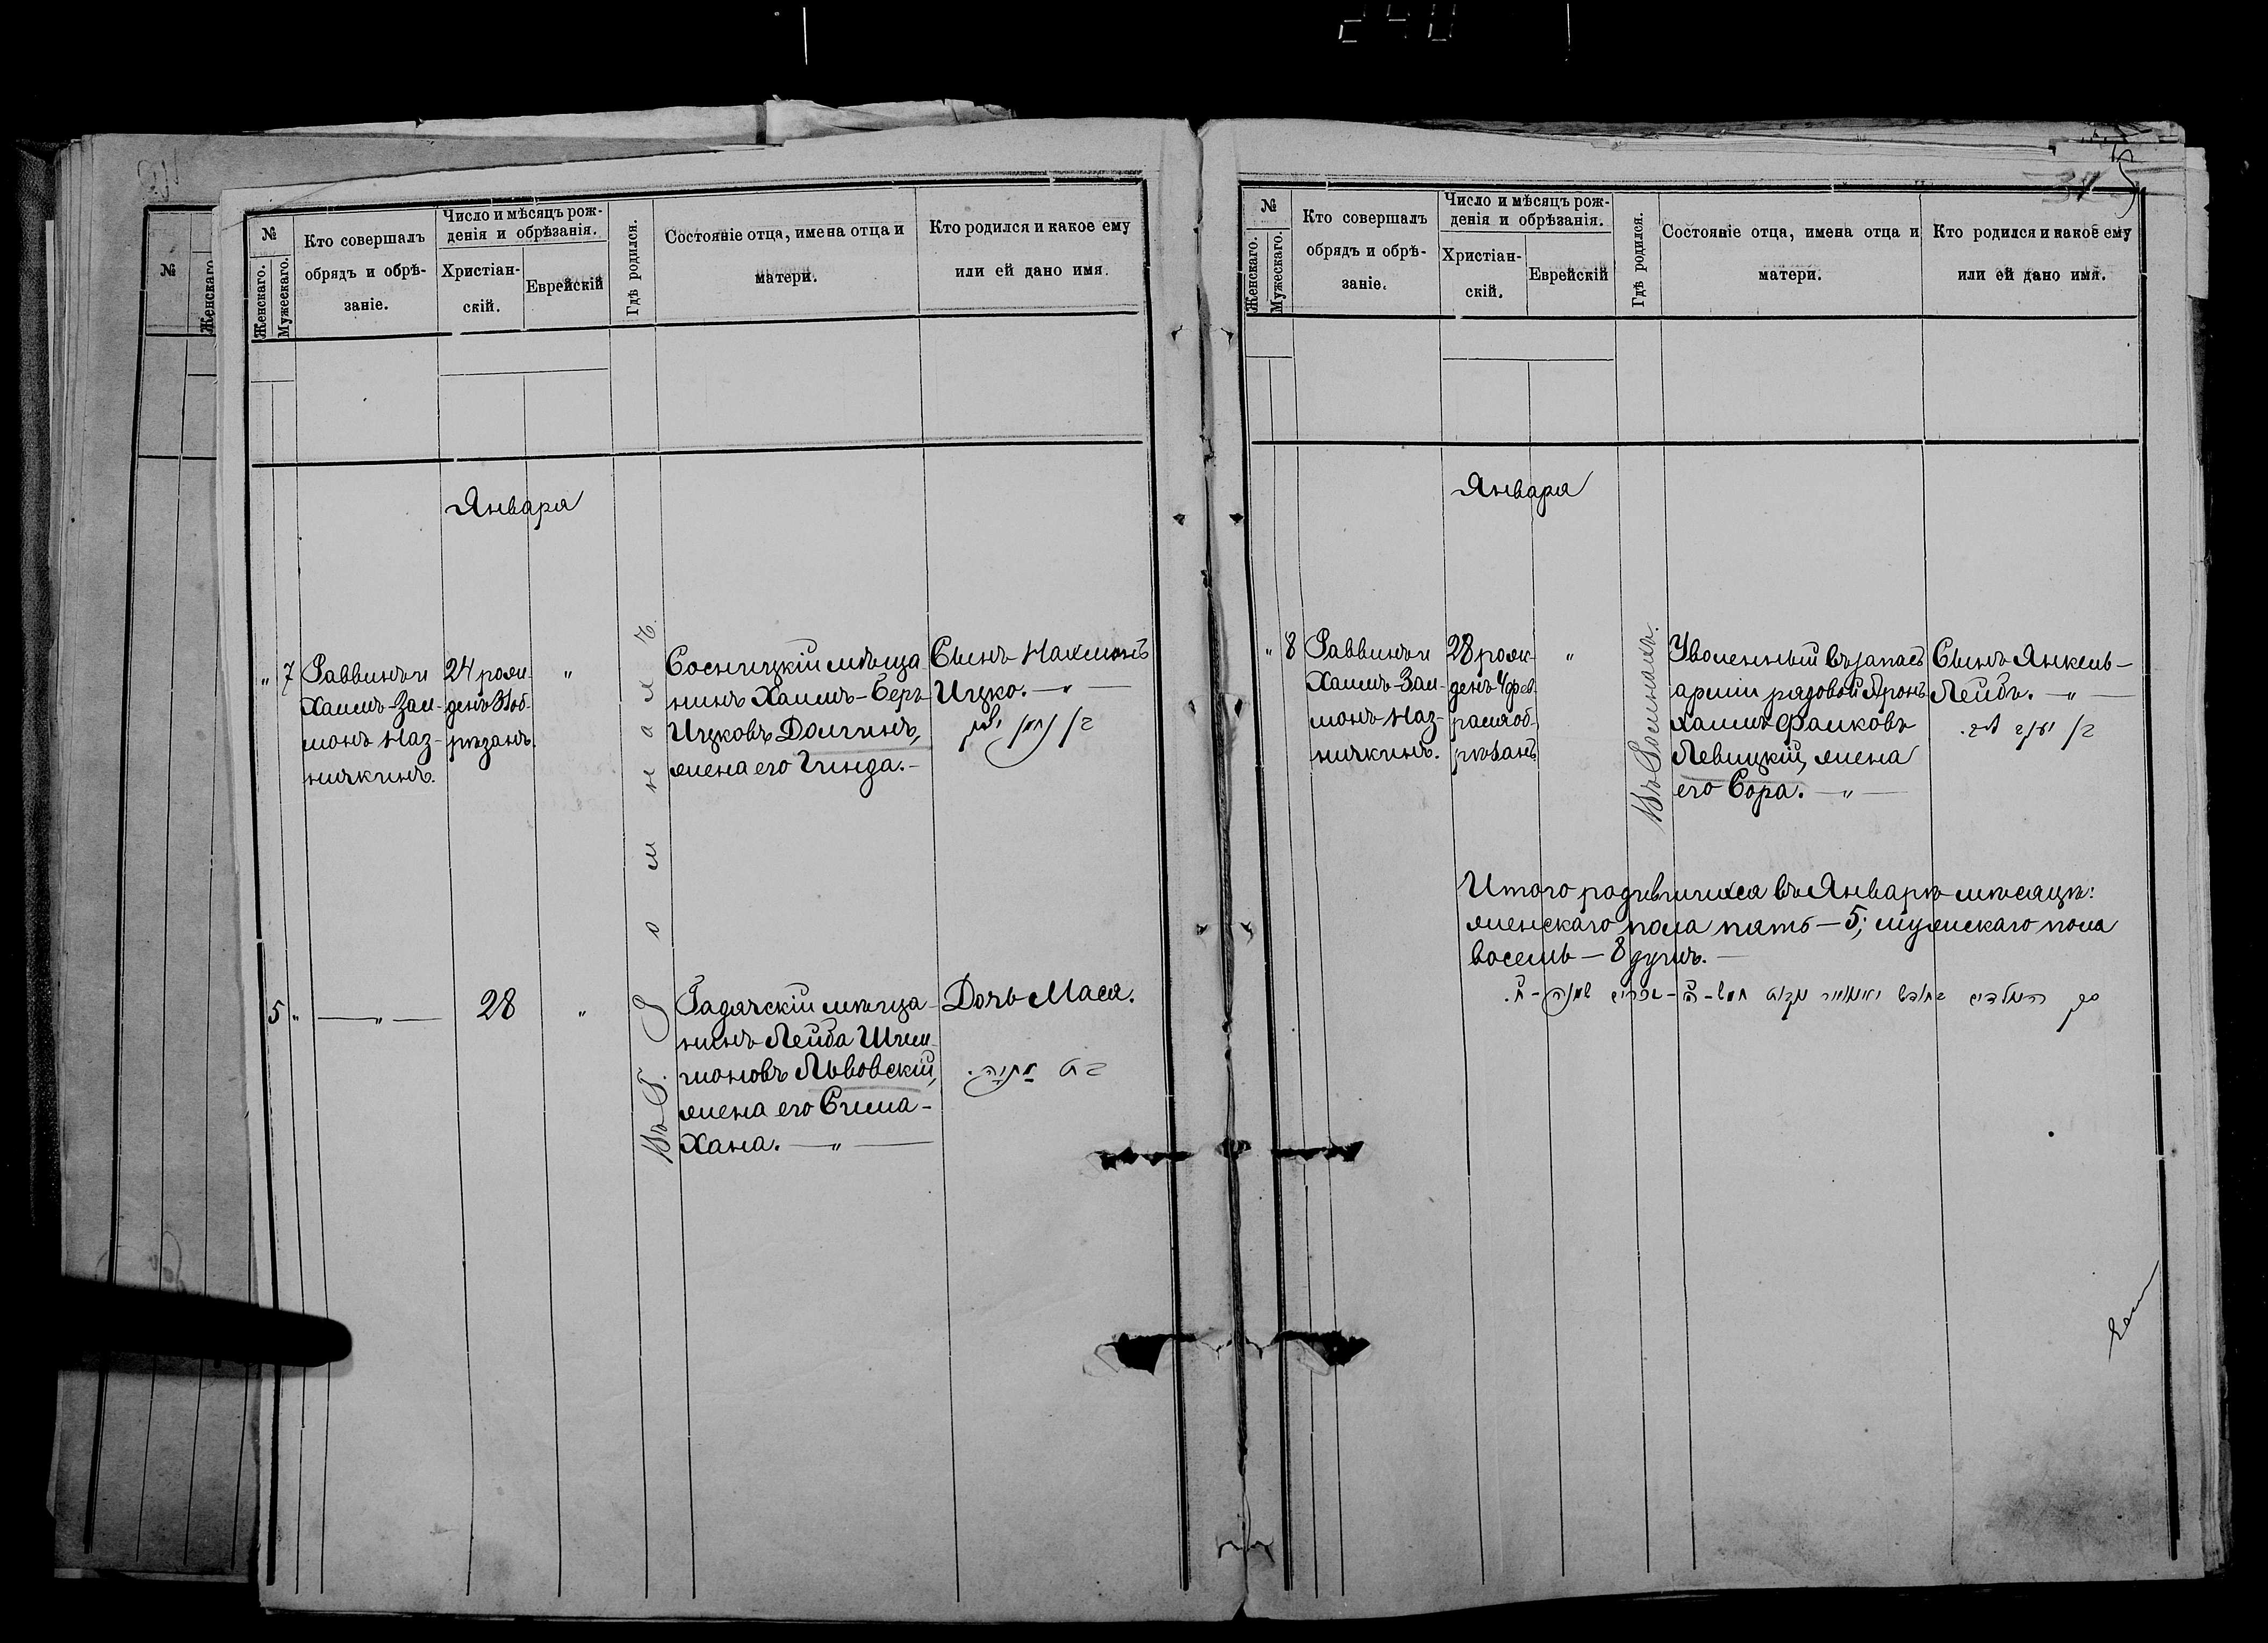 240
№
Женскаго.
Мужескаго.
Кто совершалъ
обрядъ и обрѣ-
заніе.
Число и мѣсяцъ рож-
денія и обрѣзанія.
Христіан-
скій.
Еврейскій
Гдѣ родился.
Состояніе отца, имена отца и
матери.
Кто родился и какое ему
или ей дано имя.
Января
„ 7
Раввинъ и
Хаимъ-Зал-
монъ Наз-
ничкинъ.
24 рож-
денъ 31 об-
рѣзанъ.
„
Въ Г. Ромнахъ.
Сосницкій мѣща-
нинъ Хаимъ-Беръ
Ицковъ Долгинъ,
жена его Гинда.-
Сынъ Нахманъ
Ицко. — „ —
בן נחמן יצחק
5 „
— „ —
28
„
Гадячскій мѣща-
нинъ Лейба Шли-
омовъ Львовскій,
жена его Сима-
Хана. — „ —
Дочь Мася.
בת
№
Женскаго.
Мужескаго.
Кто совершалъ
обрядъ и обрѣ-
заніе.
Число и мѣсяцъ рож-
денія и обрѣзанія.
Христіан-
скій.
Еврейскій
Гдѣ родился.
Состояніе отца, имена отца и
матери.
Кто родился и какое ему
или ей дано имя.
Января
„ 8
Раввинъ и
Хаимъ-Зал-
монъ Наз-
ничкинъ.
28 рож-
денъ 4 фев-
раля об-
рѣзанъ
„
Въ Ромнахъ.
Уволенный въ запасъ
арміи рядовой Аронъ
Хаимъ Фалковъ
Левицкій, жена
его Сора. — „ —
Сынъ Янкель-
Лейбъ. — „ —
בן יעקב ליב.
Итого родившихся въ Январѣ мѣсяцѣ:
женскаго пола пять — 5; мужскаго пола
восемь — 8 душъ. —
סך הנולדים בחודש יאנואר נקבות חמש - ה - זכרים שמנה - ח.